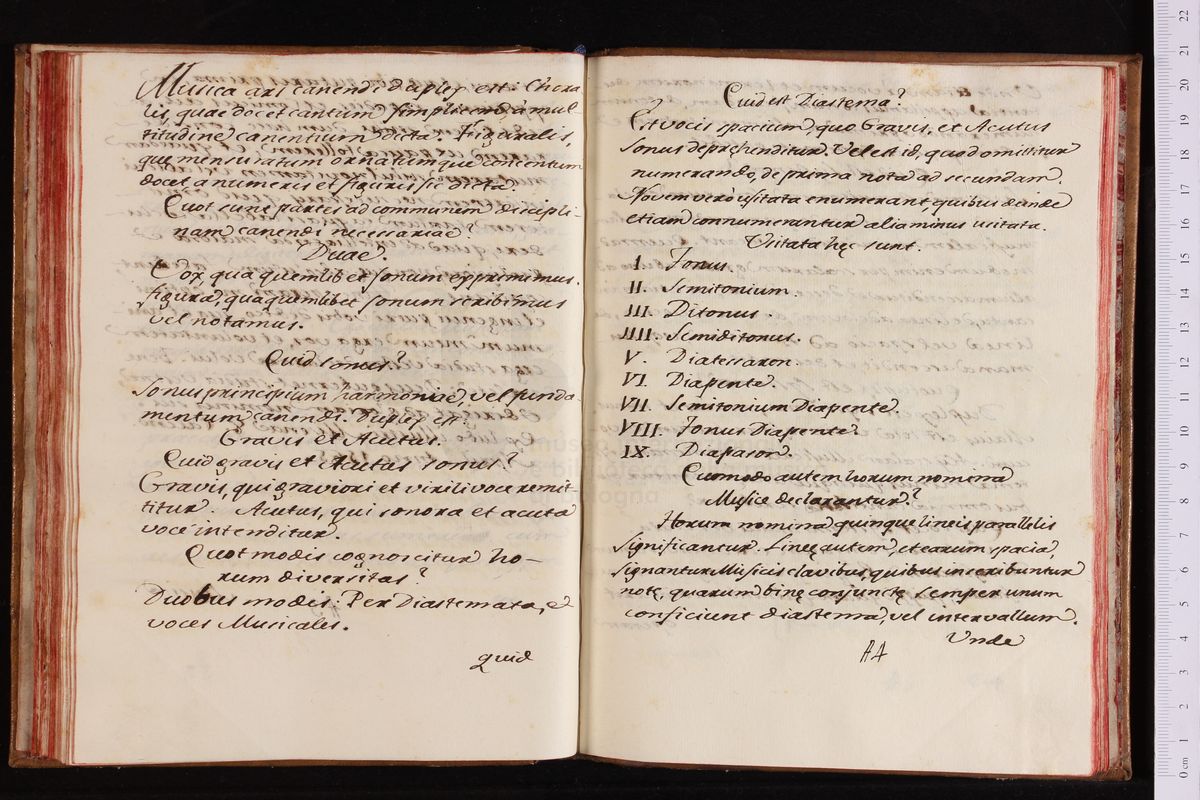 Musica ars canendi duplex est: Chora
lis, quae docet cantum simplicem à mul-
titudine canentium dicta. Figuralis,
que mensuratum ornatumque concentum
docet a numeris et figuris sic dicta.
Quot sunt partes ad communem discipli-
nam canendi necessariae?
Duae.
Vox, qua quemlibet sonum exprimimus.
figura, qua quemlibet sonum scribimus
vel notamus.
Quid sonus?
Sonus principium harmoniae, vel funda-
mentum canendi. Duplex est
Gravis et Acutus.
Quid gravis et Acutus sonus?
Gravis, qui graviori et virili voce remit
titur. Acutus, qui sonora et acuta
voce intenditur.
Quot modis cognoscitur ho-
rum diversitas?
Duobus modis: Per Diastemata, et
voces Musicales.
quid
Quid est Diastema?
Est vocis spacium, quo Gravis, et Acutus
sonus deprehenditur. Vel est id, quod omittitur
numerando, de prima nota ad secundam.
Novem verò usitata enumerant quibus deinde
etiam connumerentur alia minus usitata.
Usitata hęc sunt.
I. Tonus
II. Semitonium.
III. Ditonus.
IIII. Semiditonus.
V. Diatessaron.
VI. Diapente.
VII. Semitonium Diapente.
VIII. Tonus Diapente
IX. Diapason.
Quomodo autem horum nomina
Musice declarantur?
Horum nomina quinque lineis parallelis
significantur. Lineę autem, et earum spacia,
signantur Musicis clavibus, quibus inscribuntur
notę, quarum binę conjunctę semper unum
conficiunt diastema, vel intervallum.
Unde
AA
museo
biblioteca
bologna
0 cm 1 2 3 4 5 6 7 8 9 10 11 12 13 14 15 16 17 18 19 20 21 22